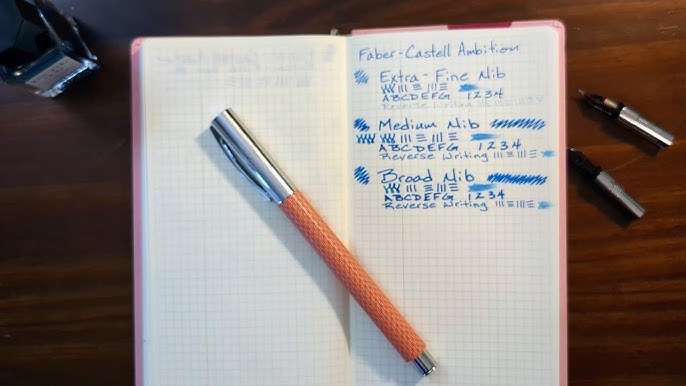 Faber-Castell Ambition
Extra-Fine Nib
ABCDEFG 1234
Reverse Writing
Medium Nib
ABCDEFG 1234
Reverse Writing
Broad Nib
ABCDEFG 1234
Reverse Writing